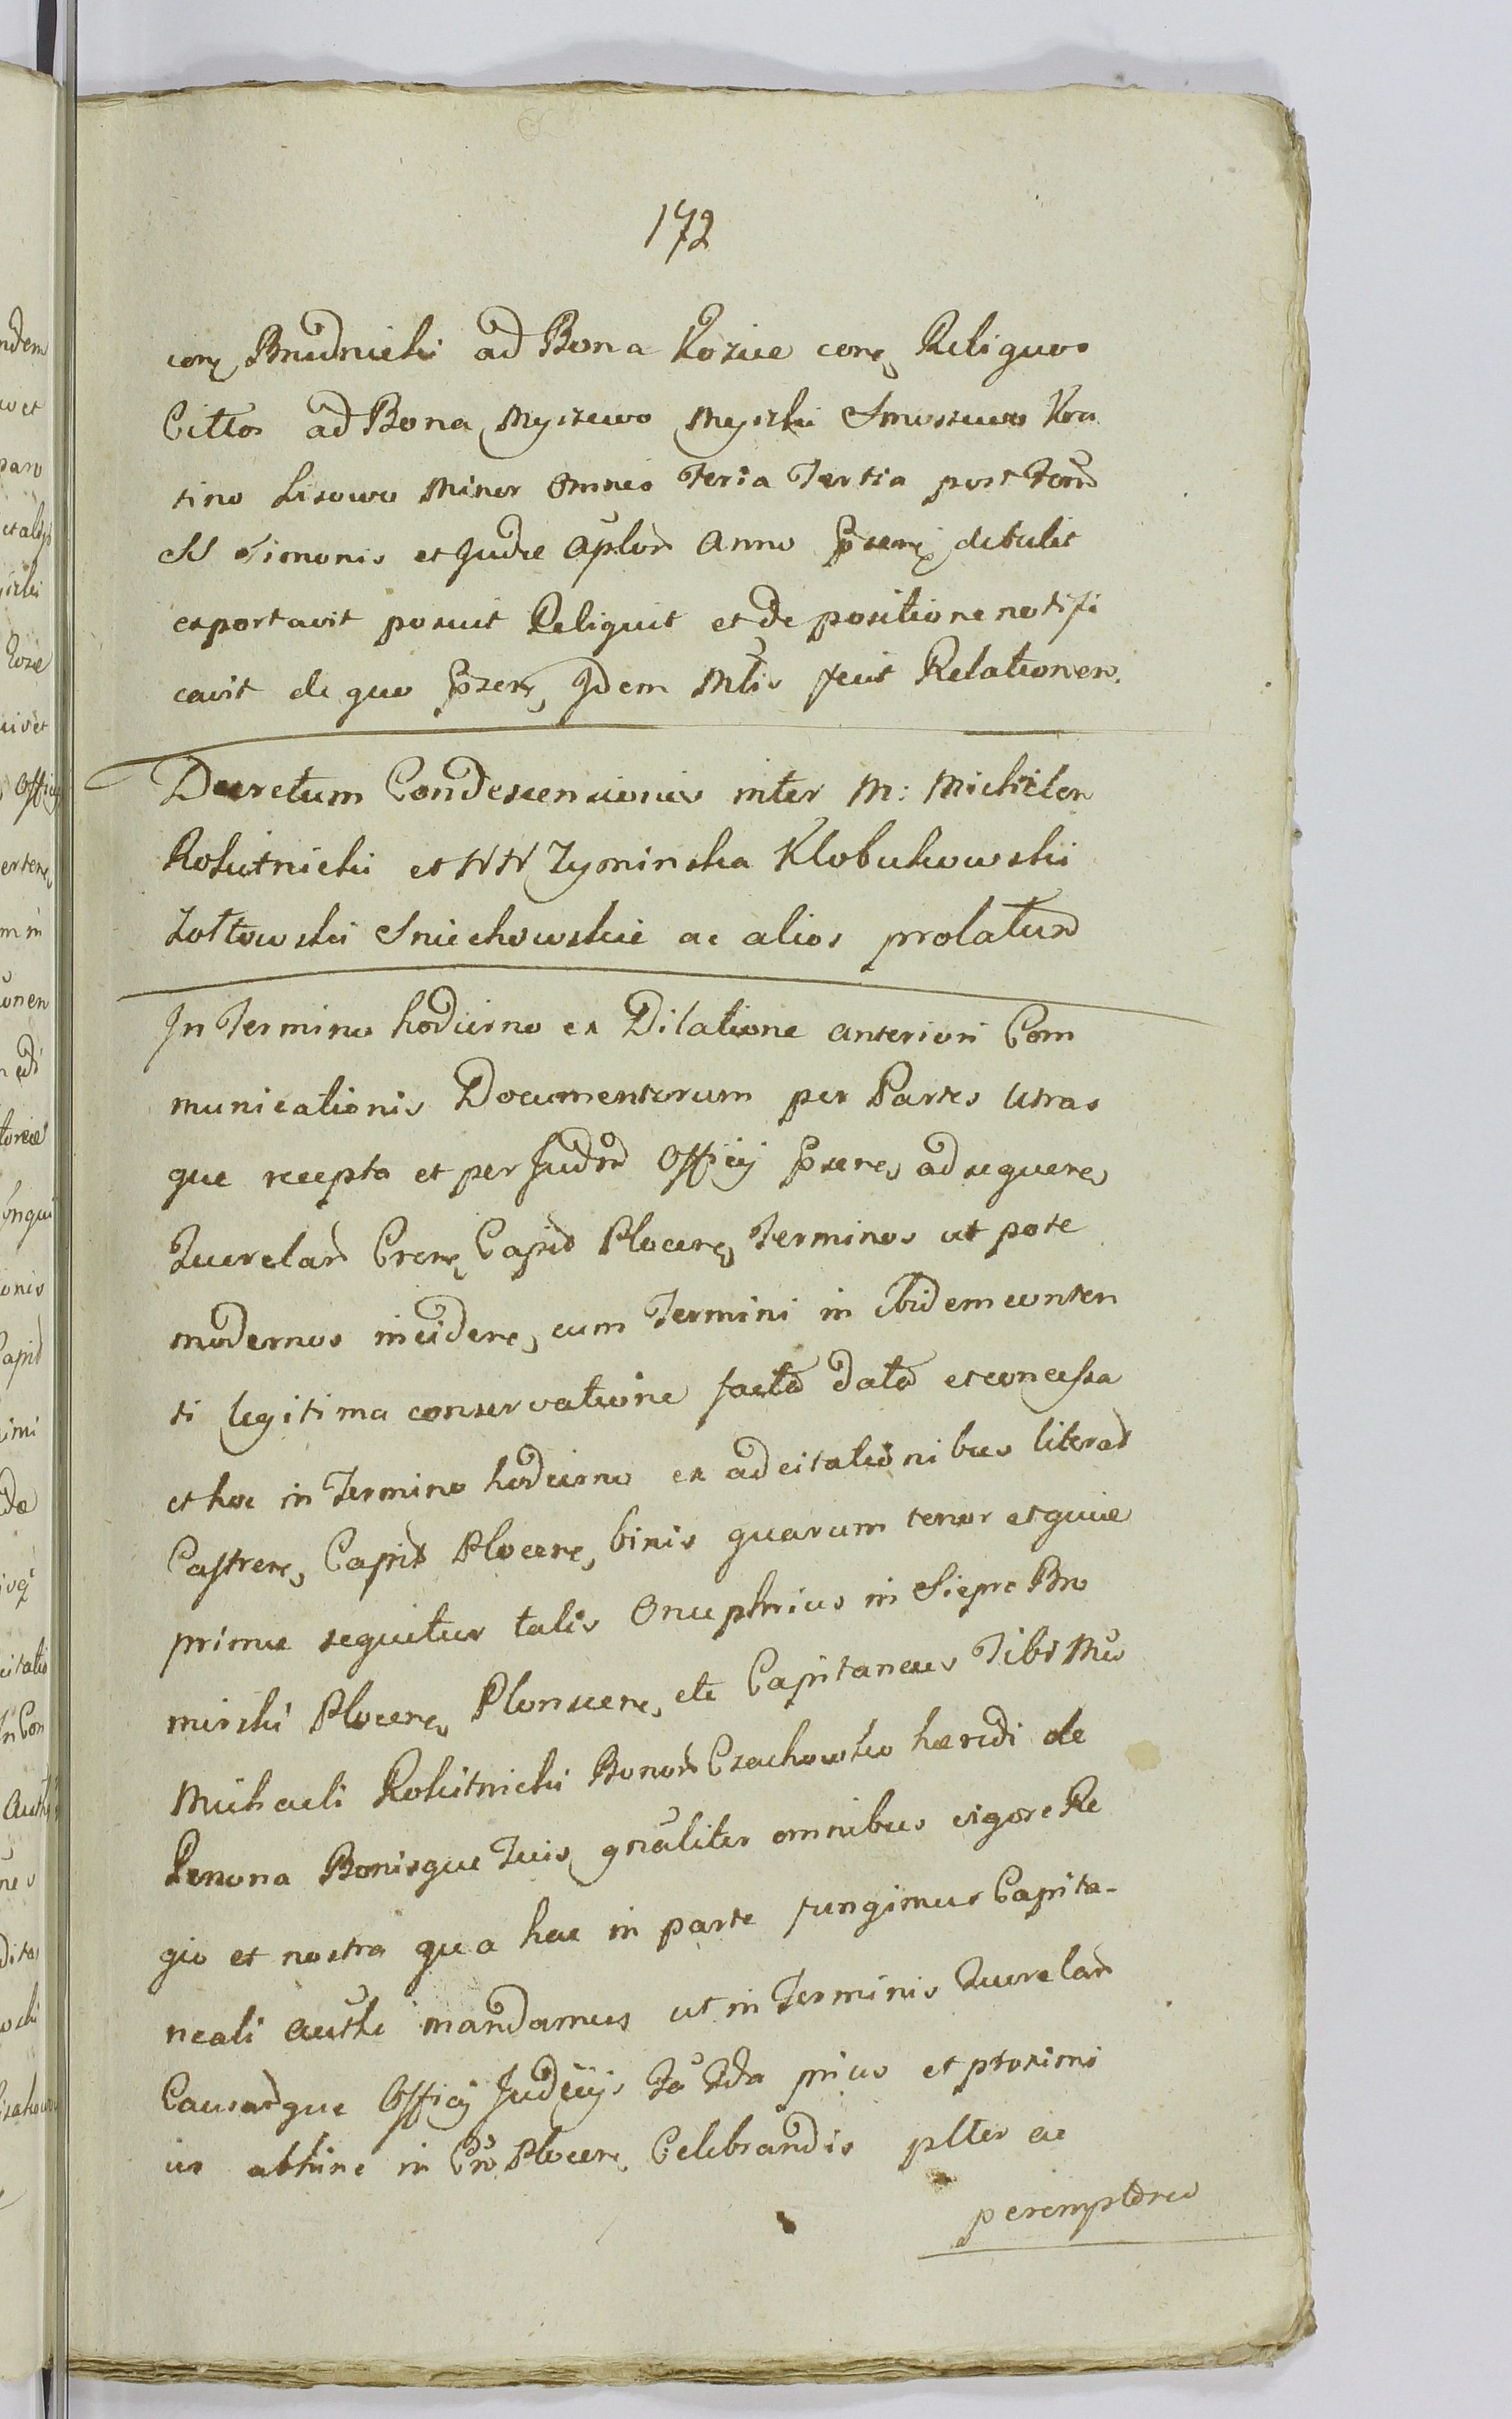 172
conc Brudnicki ad Bona Kozice conc Reliquos
Cittos ad Bona Myszewo Myszki Smoszewo Kra
tino Lisowo Minor omnes Feria Tertia post Festū
SS Simonis et Judæ Aplorū Anno Pnte detulit
exportavit posuit Reliquit et de positione notifi
cavit de quo Pnte Idem Mlis fecit Relationem.
Decretum Condescensionis inter M: Michælem
Rokitnicki et NN Zyminska Klobukowski
Zołtowski Sniechowskie ac alios prolatum
In Termino hodierno ex Dilatione anteriori Com
municationis Documentorum per Partes Utras
que recepta et per Judm Officij adsequere
Querelarū Capit Plocen Terminos ut pote
modernos incidere, cum Termini in ibidem conten
ti legitima conservatione facta data et concessa
et hoc in Termino hodierno ex adcitationibus literar
Castren, Capit Plocen, binis quarum tenor et quie
primæ sequitur talis Onuphrius in Sieprc Bro
mirski Plocen Plonscen, etc Capitaneus Tibi Mco
Michaeli Rokitnicki Bonorū Czachowko hæredi de
Persona Bonisque Tuis gnāliter omnibus vigore Re
gio et nostra qua hac in parte fungimur Capita-
neali Autthe mandamus ut in Terminis Querelarū
Causarūque Officij Judiciijs prius et proximi
us abhinc in Plocen Celebrandis plter ac
peremptorie